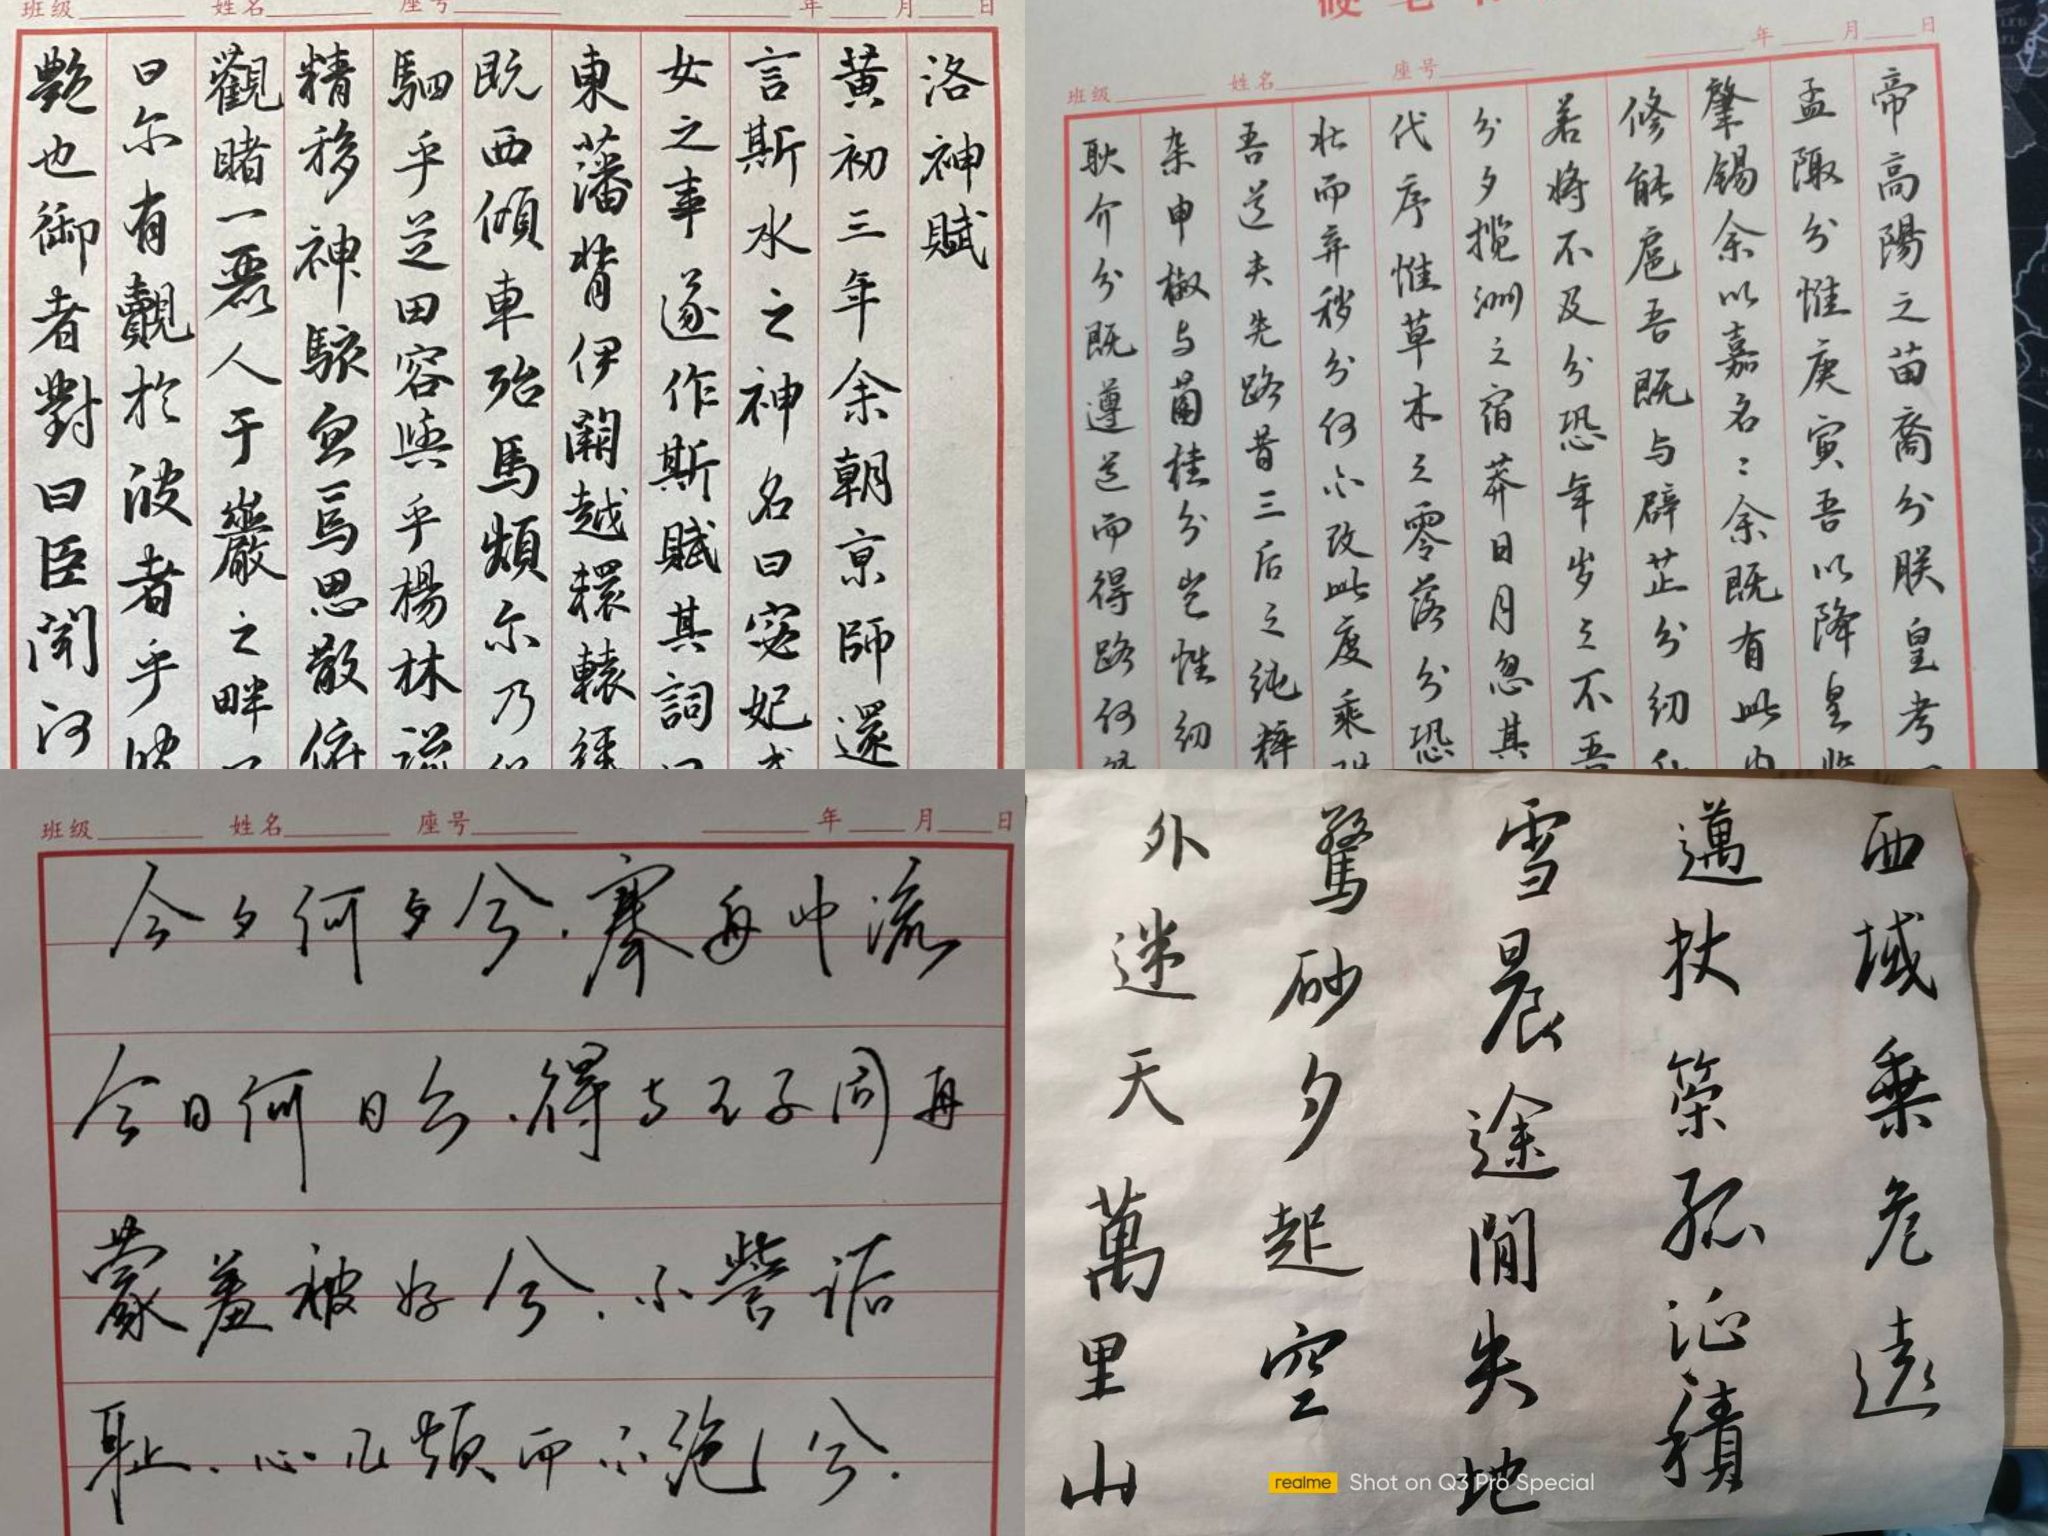 班级 姓名 座号 年 月 日
洛神賦
黄初三年余朝京師還
言斯水之神名曰宓妃
女之事遂作斯賦其詞
東藩背伊闕越轘轅經
既西傾車殆馬煩尔乃
駟乎芝田容與乎楊林
精移神駭忽焉思散俯
觀睹一麗人于巖之畔
曰尔有觀於彼者乎彼
艷也御者對曰臣聞河
年 月 日
班级 姓名 座号
帝高陽之苗裔兮朕皇考
孟陬兮惟庚寅吾以降皇
肇锡余以嘉名〻余既有此内
修能扈吾既与辟芷兮纫
若将不及兮恐年岁之不吾
兮夕揽洲之宿莽日月忽其
代序惟草木之零落兮恐
壮而弃秽兮何不改此度乘
吾道夫先路昔三后之纯粹
杂申椒与菌桂兮岂惟纫
耿介兮既遵道而得路何
班级 姓名 座号 年 月 日
今夕何夕兮.搴舟中流
今日何日兮.得与王子同舟
蒙羞被好兮.不訾诟
耻.心几烦而不绝兮.
西域乘危遠
邁杖策孤征積
雪晨途閒失地
驚砂夕起空
外迷天萬里山
realme Shot on Q3 Pro Special